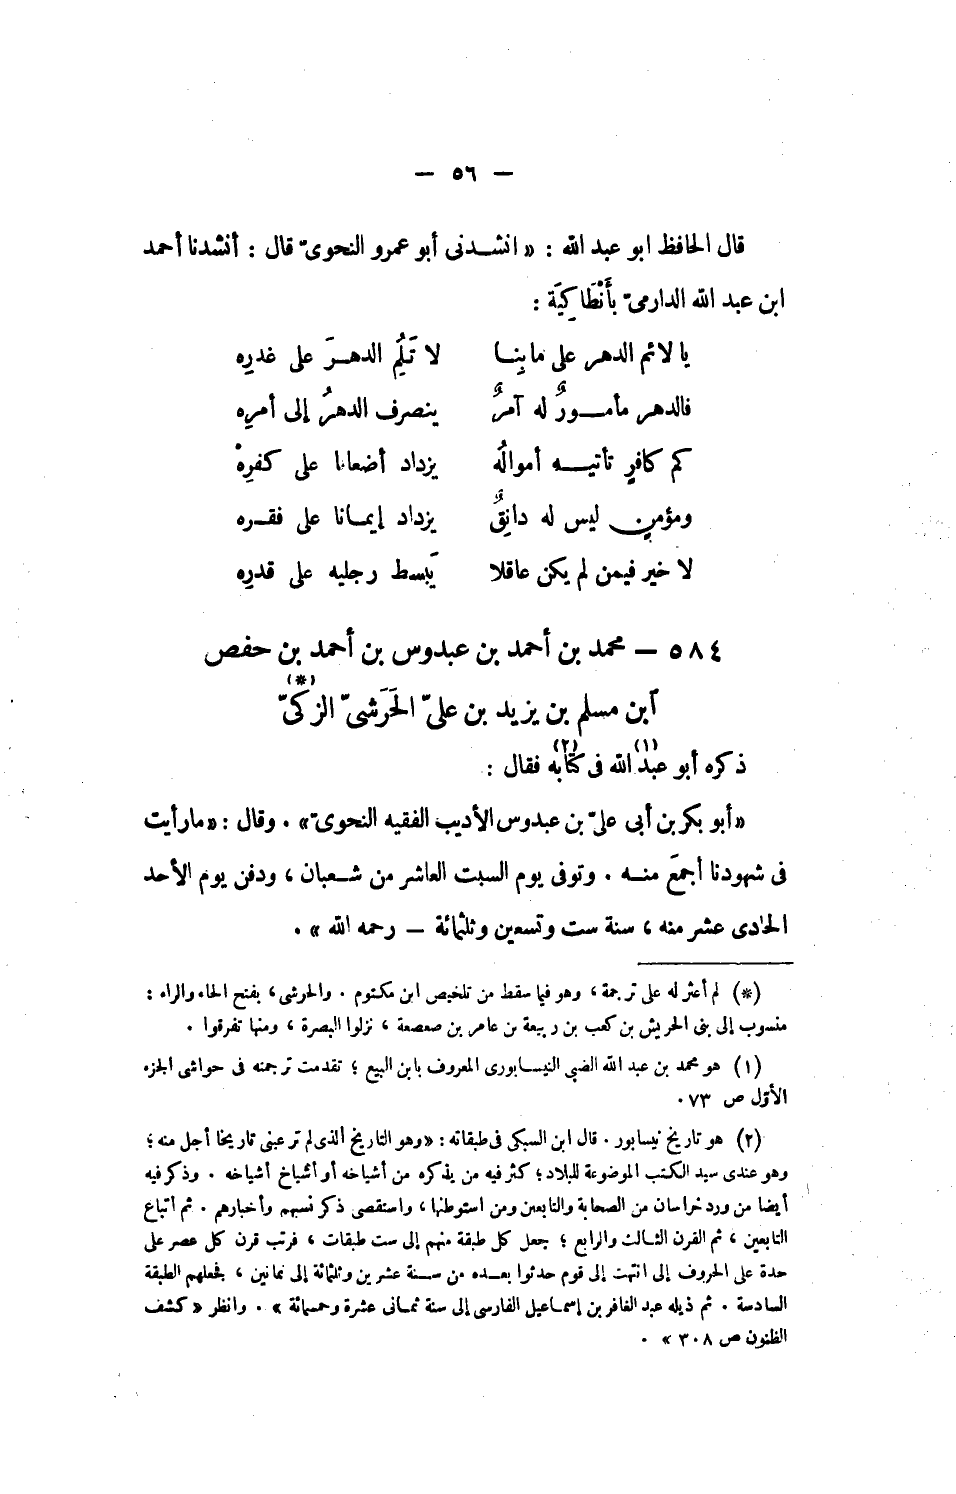 — ٥٦ —
قال الحافظ ابو عبد الله : « انشدنى أبو عمرو النحوىّ قال : أنشدنا أحمد
ابن عبد الله الدارمىّ بأَنْطَاكِيَة :
يا لائم الدهر على ما بِنا لا تَلُمِ الدهرَ على غدرِه
فالدهر مأمورٌ له آمرٌ ينصرف الدهرُ إلى أمرِه
كم كافرٍ تأتيه أموالُه يزداد أضعافا على كفرِهْ
ومؤمنٍ ليس له دانِقٌ يزداد إيمانا على فقره
لا خير فيمن لم يكن عاقلا يَبسط رجليه على قدرِه
٥٨٤ — محمد بن أحمد بن عبدوس بن أحمد بن حفص
ٱبن مسلم بن يزيد بن علىّ الحَرَشىّ الزكىّ (*)
ذكره أبو عبد (١) الله فى كتابه (٢) فقال :
«أبو بكر بن أبى علىّ بن عبدوس الأديب الفقيه النحوىّ» . وقال : «ما رأيت
فى شهودنا أجمعَ منه . وتوفى يوم السبت العاشر من شعبان ، ودفن يوم الأحد
الحادى عشر منه ، سنة ست وتسعين وثلثمائة — رحمه الله » .
(*) لم أعثر له على ترجمة ، وهو فيما سقط من تلخيص ابن مكتوم . والحرشى ، بفتح الحاء والراء :
منسوب إلى بنى الحريش بن كعب بن ربيعة بن عامر بن صعصعة ، نزلوا البصرة ، ومنها تفرقوا .
(١) هو محمد بن عبد الله الضبى النيسابورى المعروف بابن البيع ؛ تقدمت ترجمته فى حواشى الجزء
الأوّل ص ٧٣ .
(٢) هو تاريخ نيسابور . قال ابن السبكى فى طبقاته : «وهو التاريخ الذى لم تر عينى تاريخا أجل منه ؛
وهو عندى سيد الكتب الموضوعة للبلاد ؛ كثر فيه من يذكره من أشياخه أو أشياخ أشياخه . وذكر فيه
أيضا من ورد خراسان من الصحابة والتابعين ومن استوطنها ، واستقصى ذكر نسبهم وأخبارهم . ثم أتباع
التابعين ، ثم القرن الثالث والرابع ؛ جعل كل طبقة منهم إلى ست طبقات ، فرتب قرن كل عصر على
حدة على الحروف إلى انتهت إلى قوم حدثوا بعده من سنة عشرين وثلثمائة إلى ثمانين ، فجعلهم الطبقة
السادسة . ثم ذيله عبد الغافر بن إسماعيل الفارسى إلى سنة ثمانى عشرة وخمسمائة » . وانظر « كشف
الظنون ص ٣٠٨ » .